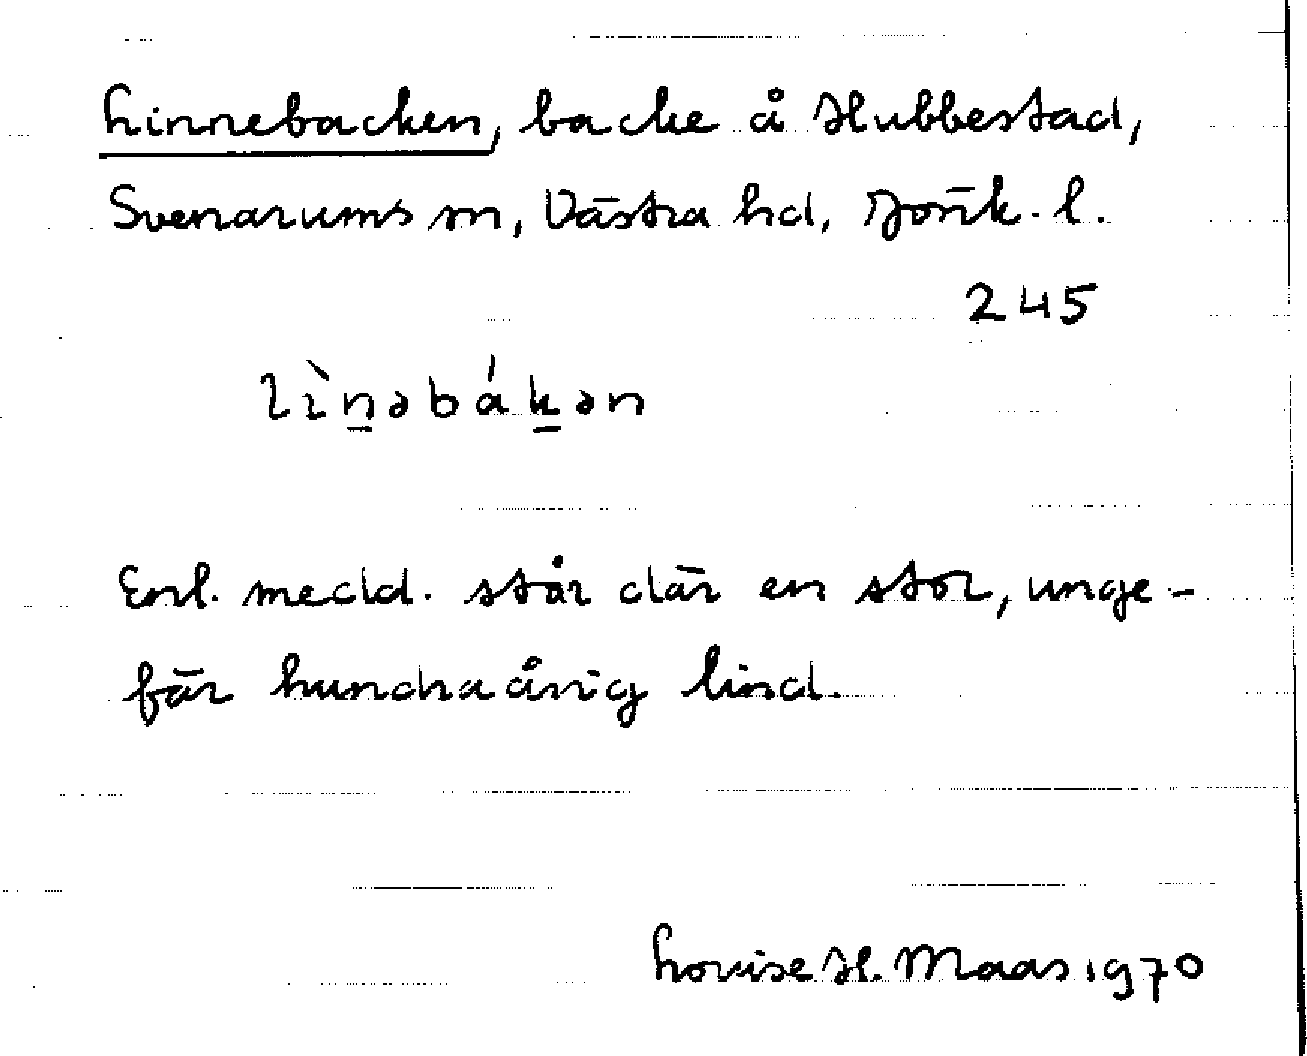 Linnebacken, backe å Hubbestad,
Svenarums sn, Västra hd, Jönk. l.
245
lìn̲əbák̲ən
Enl. medd. står där en stor, unge-
fär hundraårig lind.
Louise H. Maas 1970